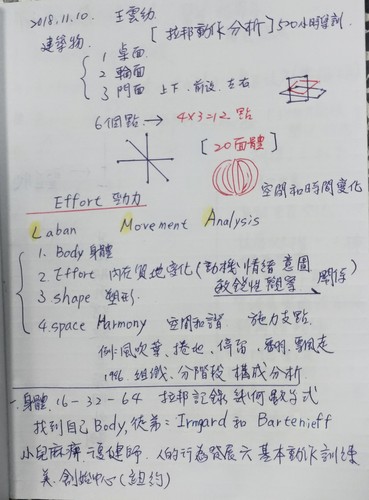 2018.11.10. 王雲幼 [拉邦動作分析] 520小時訓
建築物.
1 桌面
2 輪面
3 門面 上下、前後、左右
6個點 → 4x3=12 點
[20面體]
空間和時間變化
Effort 勁力
Laban Movement Analysis
1. Body 身體
2. Effort 內在質地变化(動機 情緒 意圖
敏銳性觀察 關係)
3 shape 塑形
4.space Harmony 空間和諧 施力支點.
例:風吹葉、捲地、停留、翻、飄走
1996. 組織、分階段 構成分析
一.身體. 16-32-64 拉邦記錄 幾何數方式
找到自己Body, 徒弟= Irmgard 和 Bartenieff
小兒麻痺 復健師. 人的行為發展六基本動作訓練
美.創始中心(紐約)